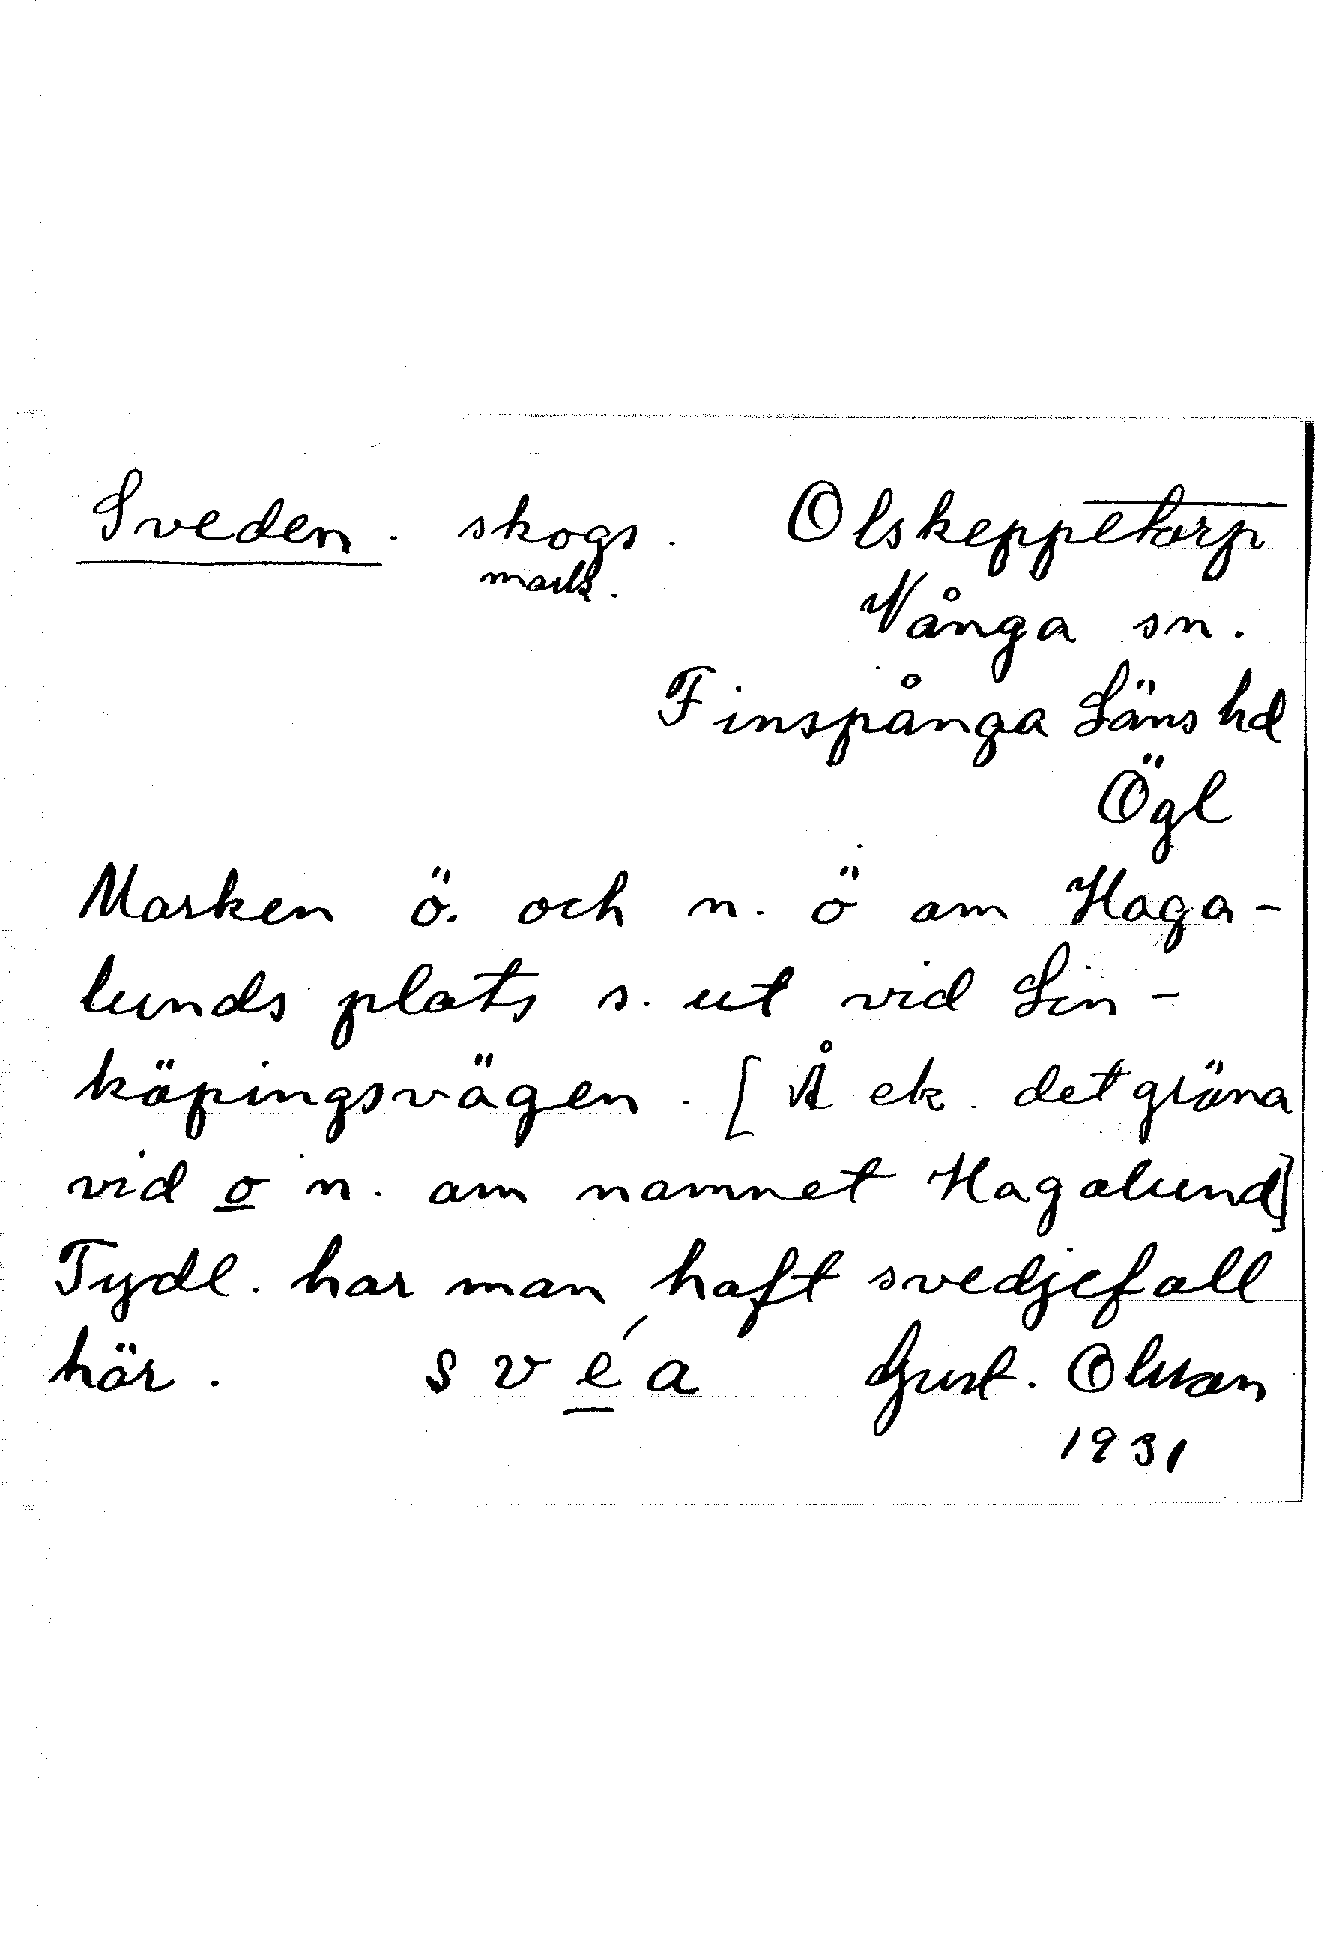 Sveden. skogs. Olskeppetorp
mark.
Vånga sn.
Finspånga Läns hd
Ögl
Marken ö. och n. ö om Haga-
lunds plats s. ut vid Lin-
köpingsvägen. [Å ek. det gröna
vid o n. om namnet Hagalund]
Tydl. har man haft svedjefall
här. svéa Gust. Olsson
1931